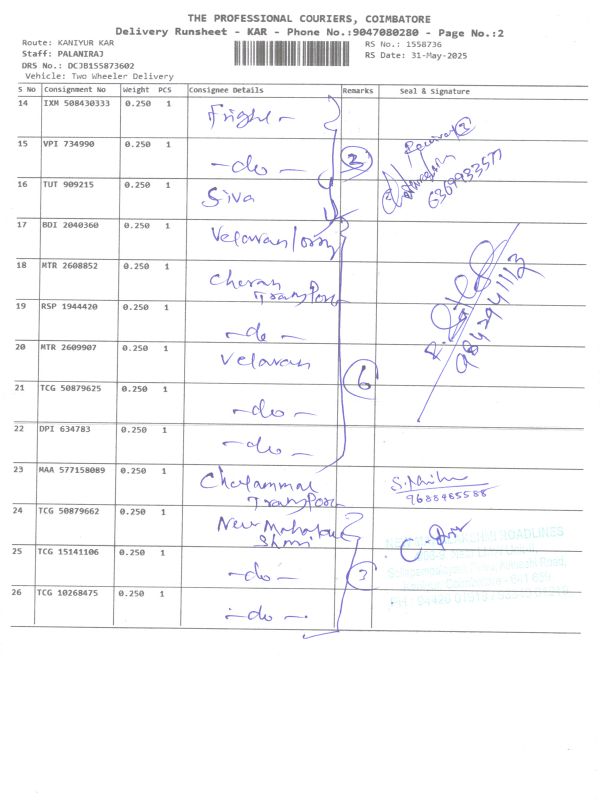 THE PROFESSIONAL COURIERS, COIMBATORE
Delivery Runsheet - KAR - Phone No.:9047080280 - Page No.:2
Route: KANIYUR KAR
RS No.: 1558736
Staff: PALANIRAJ
RS Date: 31-May-2025
DRS No.: DCJB155873602
Vehicle: Two Wheeler Delivery
S No Consignment No Weight PCS Consignee Details Remarks Seal & Signature
14 IXM 508430333 0.250 1
15 VPI 734990 0.250 1 -do- 2
6369933577
16 TUT 909215 0.250 1 Siva
17 BDI 2040360 0.250 1 Velavan
18 MTR 2608852 0.250 1 Cheran
Transport
9842941113
19 RSP 1944420 0.250 1 -do-
20 MTR 2609907 0.250 1 Velavan
21 TCG 50879625 0.250 1 -do- 6
22 DPI 634783 0.250 1 -do-
23 MAA 577158089 0.250 1 Chelammal
Transport
9688485588
24 TCG 50879662 0.250 1 New
ROADLINES
25 TCG 15141106 0.250 1 -do- 3
26 TCG 10268475 0.250 1 -do-